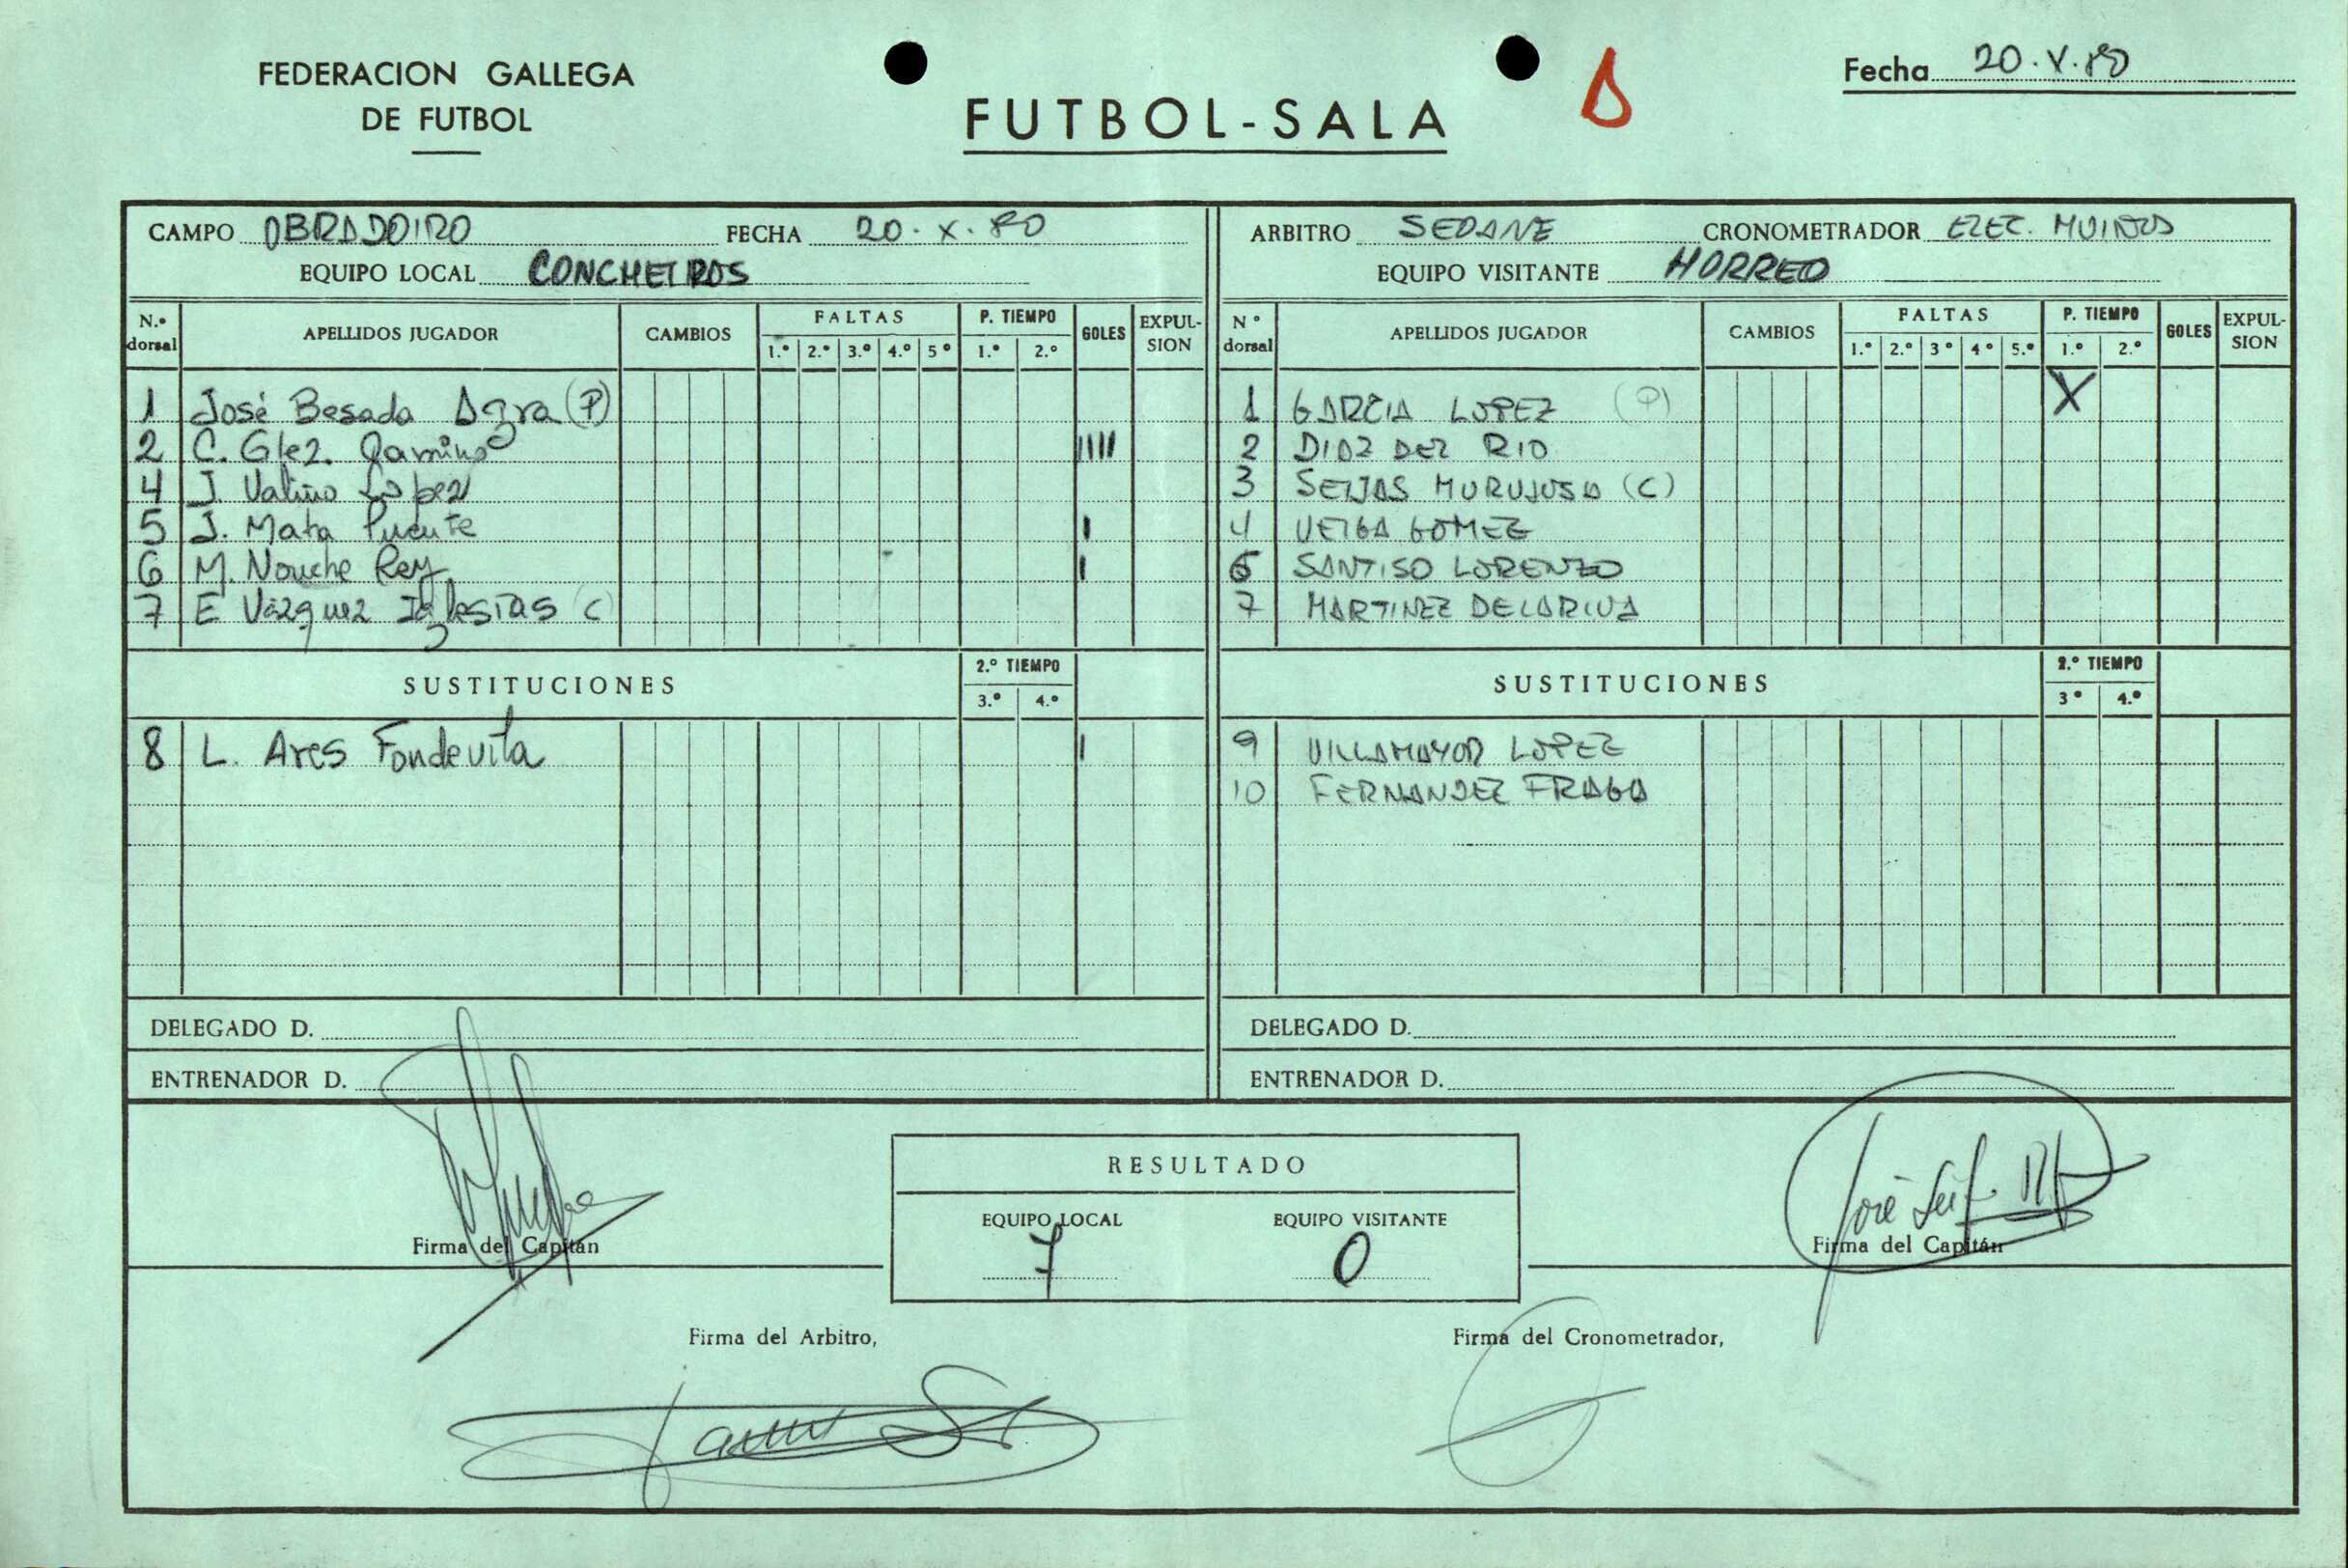 FEDERACION GALLEGA
DE FUTBOL
FUTBOL-SALA
Fecha 20.V.80
CAMPO OBRADOIRO FECHA 20.X.80
EQUIPO LOCAL CONCHEIROS
ARBITRO SEOANE CRONOMETRADOR ELEC. MUIÑOS
EQUIPO VISITANTE HORREO
N.º dorsal APELLIDOS JUGADOR CAMBIOS FALTAS 1.º 2.º 3.º 4.º 5º P. TIEMPO 1.º 2.º GOLES EXPUL-SION
1 José Besada Agra (P)
2 C. Glez. Camino IIIII
4 J. Valiño López
5 J. Mata Puente I
6 M. Nouche Rey I
7 E Vázquez Iglesias (C
SUSTITUCIONES 2.º TIEMPO 3.º 4.º
8 L. Ares Fondevila I
DELEGADO D.
ENTRENADOR D.
Nº dorsal APELLIDOS JUGADOR CAMBIOS FALTAS 1.º 2.º 3º 4º 5.º P. TIEMPO 1.º 2.º GOLES EXPUL-SION
1 GARCIA LOPEZ (P) X
2 DIAZ DEL RIO
3 SEIJAS MURUJOSA (C)
4 VEIGA GOMEZ
6 SANTISO LORENZO
7 MARTINEZ DELARIVA
SUSTITUCIONES 2.º TIEMPO 3º 4.º
9 VILLAMAYOR LOPEZ
10 FERNANDEZ FRAGA
DELEGADO D.
ENTRENADOR D.
RESULTADO
EQUIPO LOCAL EQUIPO VISITANTE
7 0
Firma del Capitán
Firma del Capitán
Firma del Arbitro,
Firma del Cronometrador,